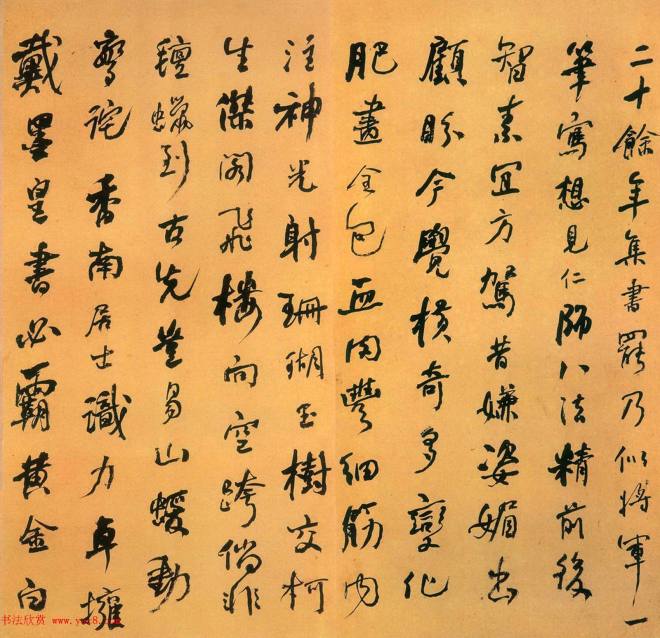 二十餘年集書罷乃似將軍一
筆寫想見仁師八法精前後
智素宜方駕昔嫌姿媚出
顧盼今覺橫奇多變化
肥畫全包血肉豐細筋內
注神光射珊瑚玉樹交柯
生傑閣飛樓向空跨倘非
氊蠟到古先豈易山蠖動
驚詫香南居士識力卓擁
戴墨皇書必霸黄金白
书法欣赏